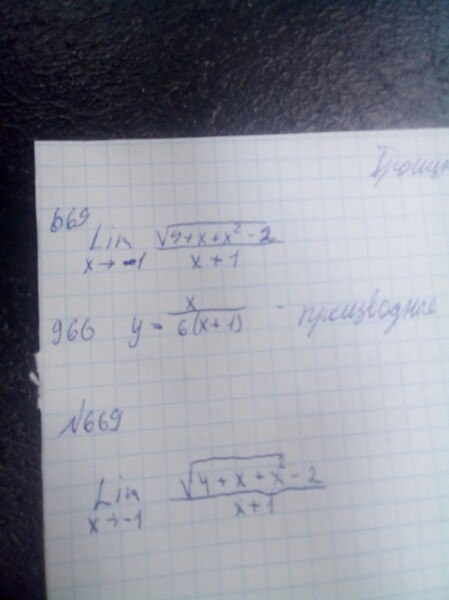 669
Lim x→-1 √(4+x+x²-2) / (x+1)
966 y = x / 6(x+1) - производные
N669
Lim x→-1 (√(4+x+x²) - 2) / (x+1)